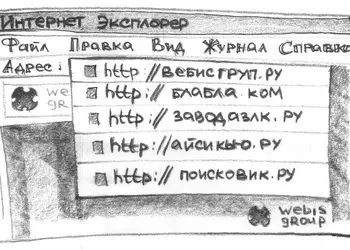 Интернет Эксплорер
Файл Правка Вид Журнал Справка
Адрес:
http://вебисгруп.ру
http://блабла.ком
http://заводазлк.ру
http://айсикью.ру
http://поисковик.ру
we
gr
webis
group